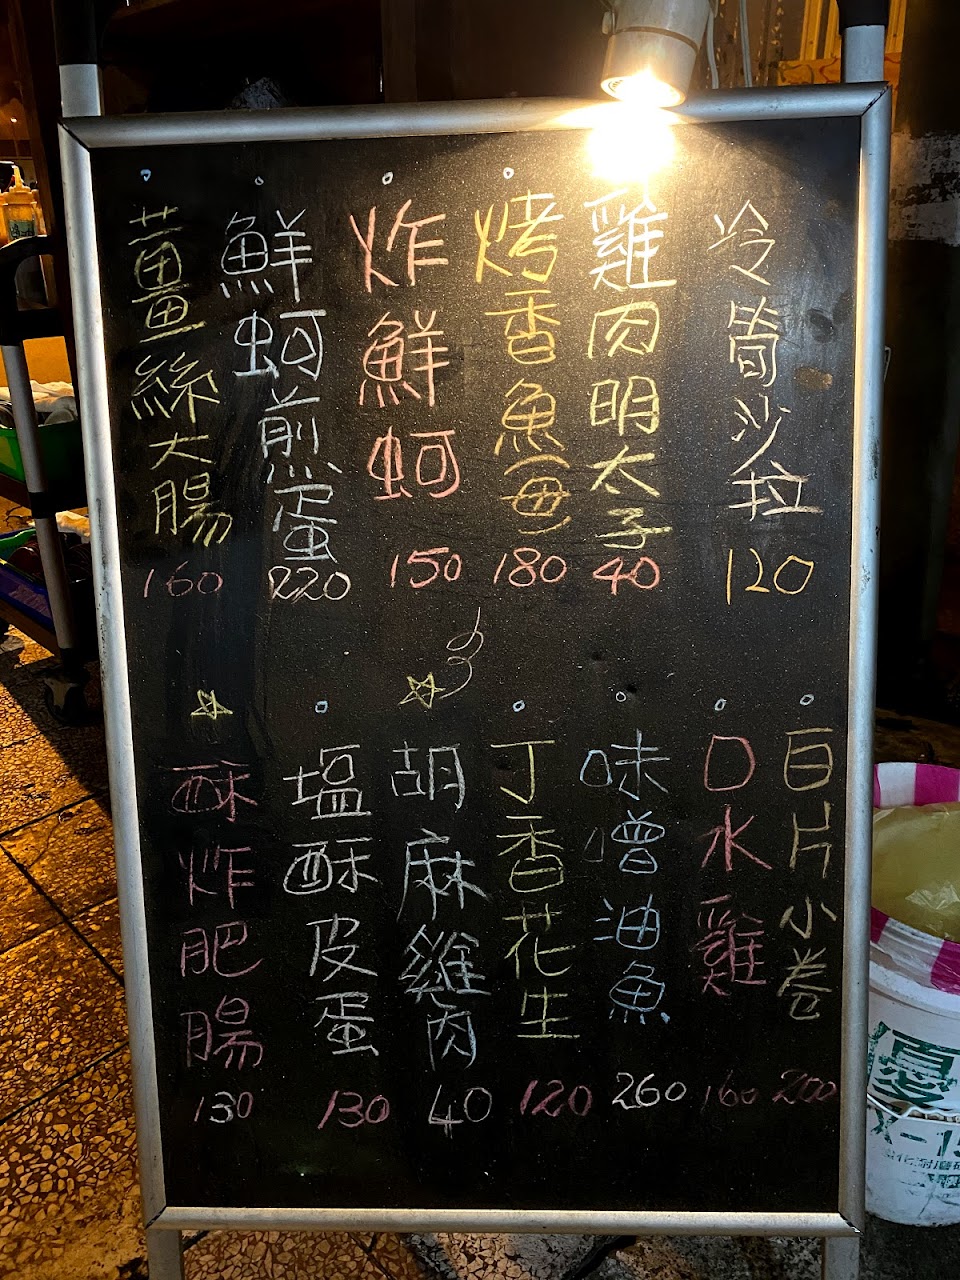 冷筍沙拉 120
雞肉明太子 40
烤香魚(母) 180
炸鮮蚵 150
鮮蚵煎蛋 220
薑絲大腸 160
白片小卷 200
口水雞 160
味噌油魚 260
丁香花生 120
胡麻雞肉 40
塩酥皮蛋 130
酥炸肥腸 130